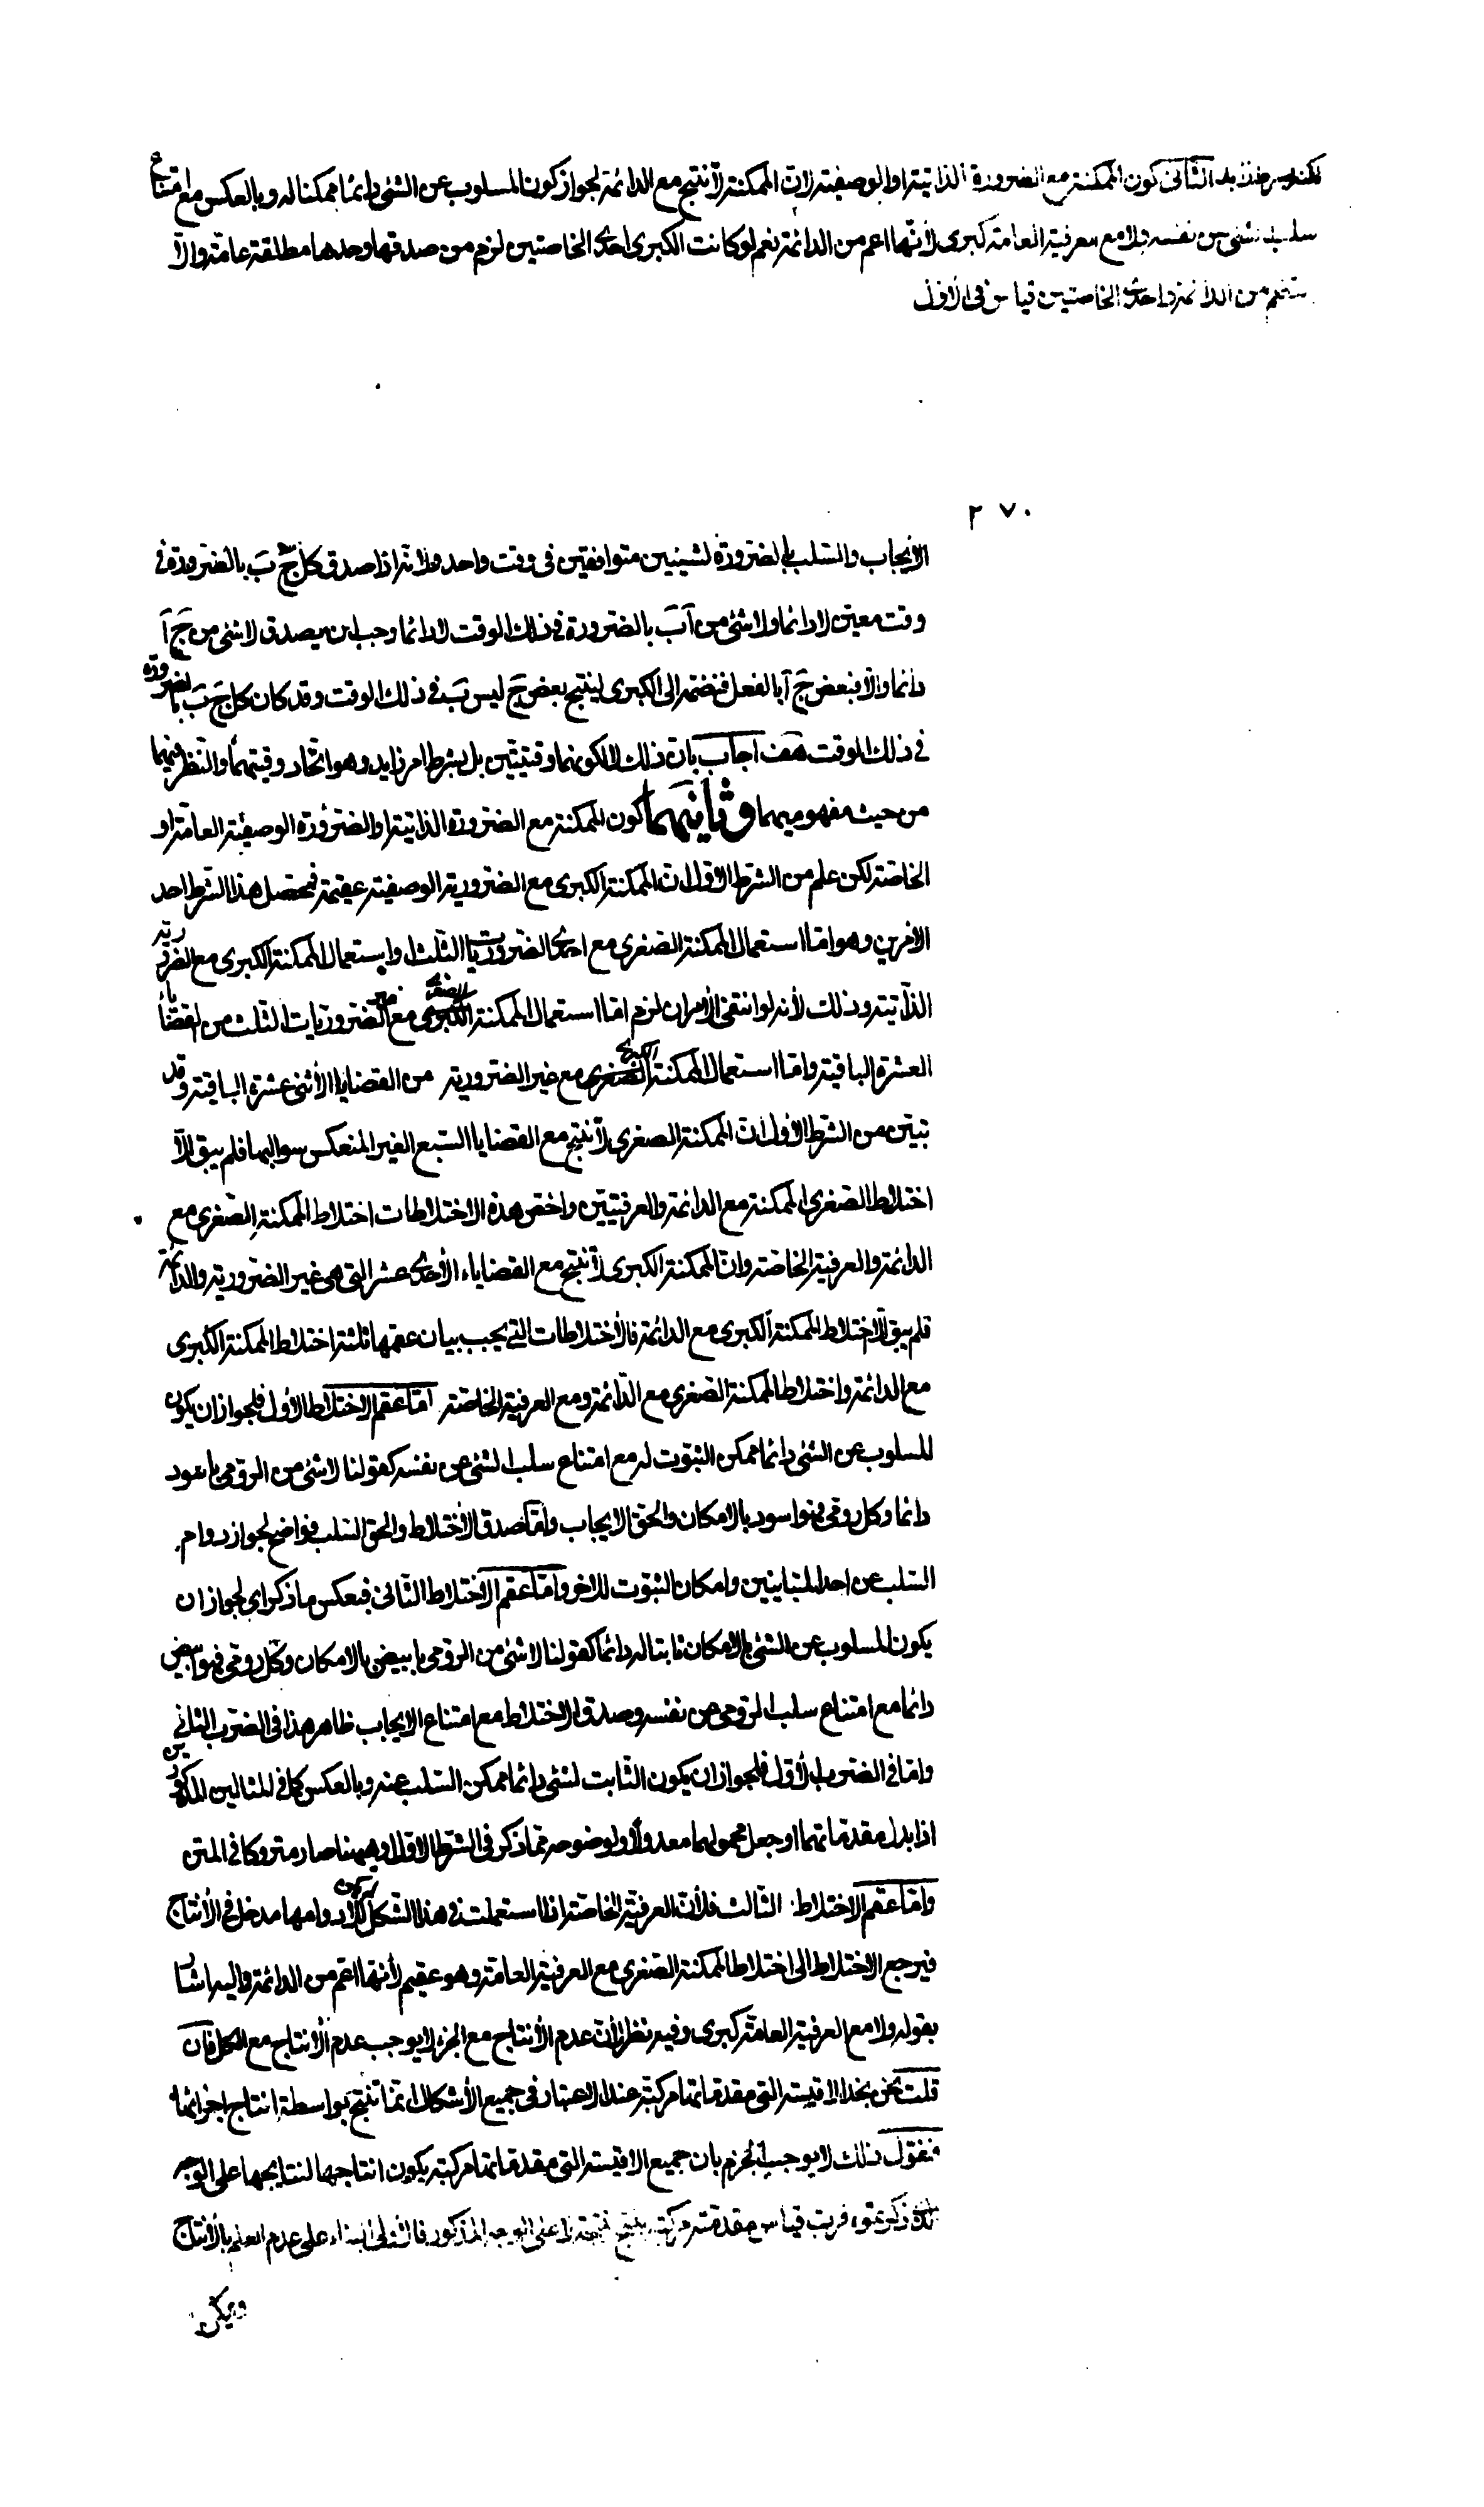 الثانى كون الممكنة مع الضرورة الذاتية او الوصفية لان الممكنة لا تنتج مع الدائمة لجواز كون المسلوب عن الشئ دائما ممكنا له وبالعكس مع امتناع
سلب شئ عن نفسه ولا مع العرفية العامة كبرى لانها اعم من الدائمة نعم لو كانت الكبرى احدى الخاصتين لزم من صدقها وحدها مطلقة عامة والا
من الدائمة واحدى الخاصتين قياس فى الاول
٢٧٠
الايجاب والسلب بالضرورة لشيئين متوافقين فى وقت واحد ولانه اذا صدق كل ج ب بالضرورة فى
وقت معين لا دائما ولا شئ من آ ب بالضرورة فى ذلك الوقت لا دائما وجب ان يصدق لا شئ من ج آ
دائما والا فبعض ج آ بالفعل فنضمه الى الكبرى لينتج بعض ج ليس ب فى ذلك الوقت وقد كان كل ج ب بالضرورة
فى ذلك الوقت هف اجاب بان ذلك لا لكونهما وقتيتين بل بشرط امر زايد وهو اتحاد وقتيهما والنظر فيهما
من حيث مفهوميهما وثانيهما كون الممكنة مع الضرورة الذاتية او الضرورة الوصفية العامة او
الخاصة لكن علم من الشرط الاول ان الممكنة الكبرى مع الضرورية الوصفية عقيمة فمحصل هذا الشرط احد
الامرين وهو اما استعمال الممكنة الصغرى مع احدى الضروريات الثلث او استعمال الممكنة الكبرى مع الضرورية
الذاتية وذلك لانه لو انتفى الامران لزم اما استعمال الممكنة الصغرى مع غير الضروريات الثلث من القضايا
العشرة الباقية واما استعمال الممكنة الكبرى مع غير الضرورية من القضايا الاثنى عشرة الباقية وقد
تبين من الشرط الاول ان الممكنة الصغرى لا تنتج مع القضايا السبع الغير المنعكس سوالبها فلم يبق الا
اختلاط الصغرى الممكنة مع الدائمة والعرفيتين واخص هذه الاختلاطات اختلاط الممكنة الصغرى مع
الدائمة والعرفية الخاصة وان الممكنة الكبرى لا تنتج مع القضاياء الاحدى عشر التى هى غير الضرورية والدائمة
فلم يبق الا اختلاط الممكنة الكبرى مع الدائمة فالاختلاطات التى يجب بيان عقمها ثلثة اختلاط الممكنة الكبرى
مع الدائمة واختلاط الممكنة الصغرى مع الدائمة ومع العرفية الخاصة اما عقم الاختلاط الاول فلجواز ان يكون
المسلوب عن الشئ دائما ممكن الثبوت له مع امتناع سلب الشئ عن نفسه كقولنا لا شئ من الرومى باسود
دائما وكل رومى فهو اسود بالامكان والحق الايجاب واما صدق الاختلاط والحق السلب فواضح لجواز دوام
السلب عن احد المتباينين وامكان الثبوت للاخر واما عقم الاختلاط الثانى فبعكس ما ذكر اى لجواز ان
يكون المسلوب عن الشئ بالامكان ثابتا له دائما كقولنا لا شئ من الرومى بابيض بالامكان وكل رومى فهو ابيض
دائما مع امتناع سلب الرومى عن نفسه وصدق الاختلاط مع امتناع الايجاب ظاهر هذا فى الضرب الثانى
واما فى الضرب الاول فلجواز ان يكون الثابت لشئ دائما ممكن السلب عنه وبالعكس كما فى المثالين المذكورين
اذا بدل مقدماتهما او جعل محمولهما معدولا ولوضوحه مما ذكر فى الشرط الاول وههنا صار متروكا فى المتن
واما عقم الاختلاط الثالث فلان العرفية الخاصة اذا استعملت فى هذا الشكل لا يكون للادوامها مدخل فى الانتاج
فيرجع الاختلاط الى اختلاط الممكنة الصغرى مع العرفية العامة وهو عقيم لانها اعم من الدائمة واليه اشار
بقوله ولا مع العرفية العامة كبرى وفيه نظر لان عدم الانتاج مع الجزء لا يوجب عدم الانتاج مع الكل فان
قلت نحن نجد الاقيسة التى مقدماتها مركبة عند الاعتبار فى جميع الاشكال انما تنتج بواسطة انتاج اجزائها
فنقول ذلك لا يوجب الجزم بان جميع الاقيسة التى مقدماتها مركبة يكون انتاجها لنتايجها على الوجه
الذى ذكرتموه فرب قياس مقدمته مركبة ينتج نتيجة لا على الوجه المذكور فالاولى البناء على عدم العلم بالانتاج
ويمكن